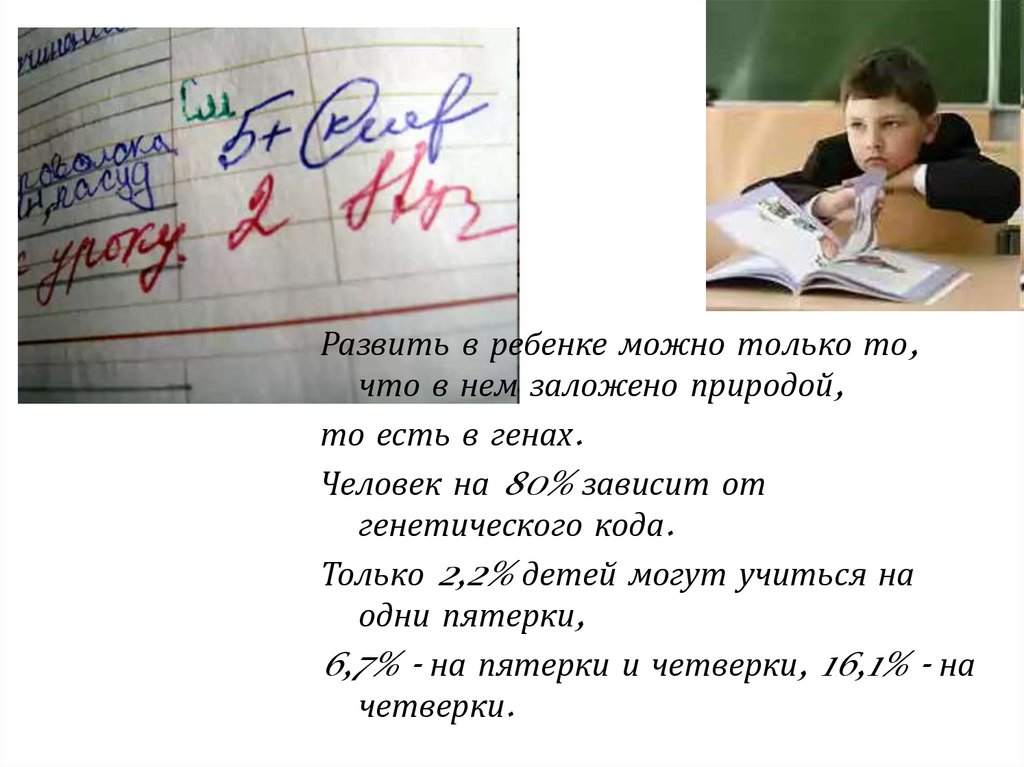 См
5+
роволока
посуд
уроку. 2
Развить в ребенке можно только то,
что в нем заложено природой,
то есть в генах.
Человек на 80% зависит от
генетического кода.
Только 2,2% детей могут учиться на
одни пятерки,
6,7% - на пятерки и четверки, 16,1% - на
четверки.